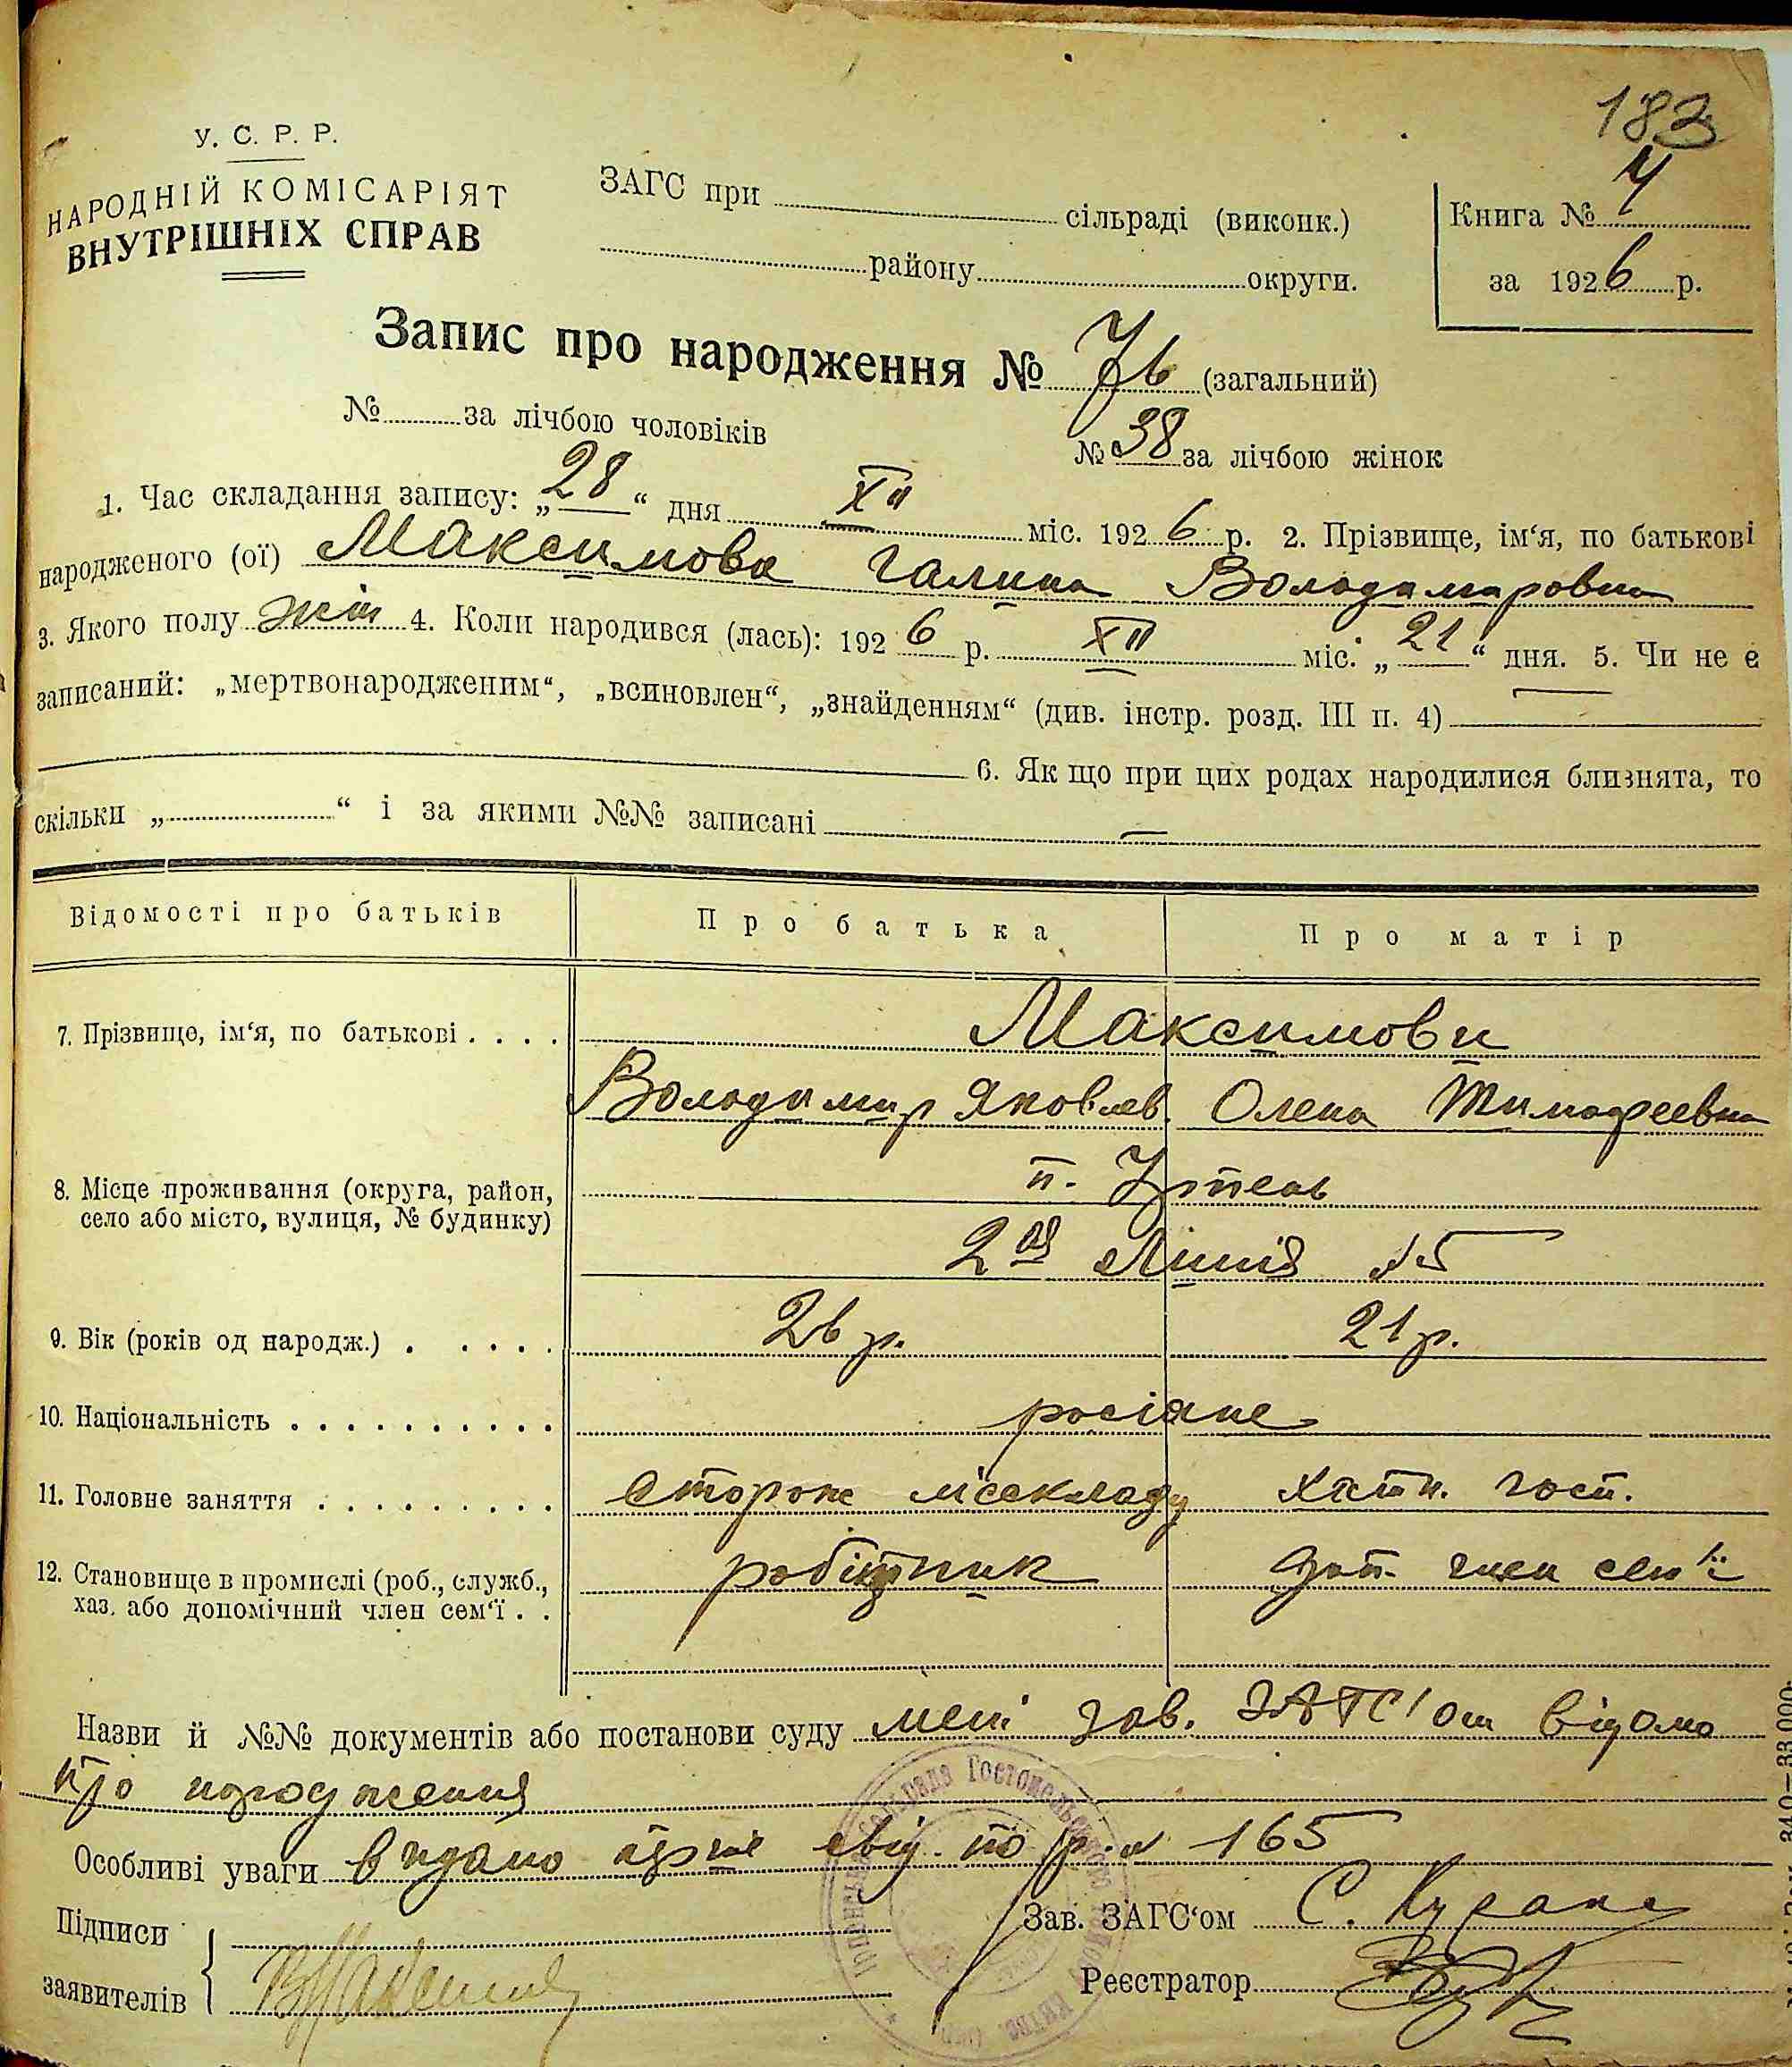 183
У. С. Р. Р.
НАРОДНІЙ КОМІСАРІЯТ
ВНУТРІШНІХ СПРАВ
ЗАГС при сільраді (виконк.)
району округи.
Книга №
за 1926 р.
Запис про народження № 76 (загальний)
№ за лічбою чоловіків
№ 38 за лічбою жінок
1. Час складання запису: „28“ дня XII міс. 1926 р. 2. Прізвище, ім‘я, по батькові
народженого (ої) Максимова Галина Володимировна
3. Якого полу жін 4. Коли народився (лась): 1926 р. XII міс. „21“ дня. 5. Чи не є
записаний: „мертвонародженим“, „всиновлен“, „знайденням“ (див. інстр. розд. III п. 4)
6. Як що при цих родах народилися близнята, то
скільки „ “ і за якими №№ записані —
Відомості про батьків Про батька Про матір
7. Прізвище, ім‘я, по батькові . . . . Максимови
Володимир Яковлев. Олена Тимофеевна
8. Місце проживання (округа, район,
село або місто, вулиця, № будинку)
п. Ірпень
2ая Лінія №5
9. Вік (років од народж.) . . . . . 26 р. 21 р.
10. Національність . . . . . . . . . . росіяне
11. Головне заняття . . . . . . . . . сторож лісскладу хатн. госп.
12. Становище в промислі (роб., служб.,
хаз. або допомічний член сем‘ї . .
робітник доп. член сем'ї
Назви й №№ документів або постанови суду мені зав. ЗАГС'ом відомо
про народження
Особливі уваги видано свід. по р. № 165
Підписи
заявителів
Зав. ЗАГС‘ом С.
Реєстратор